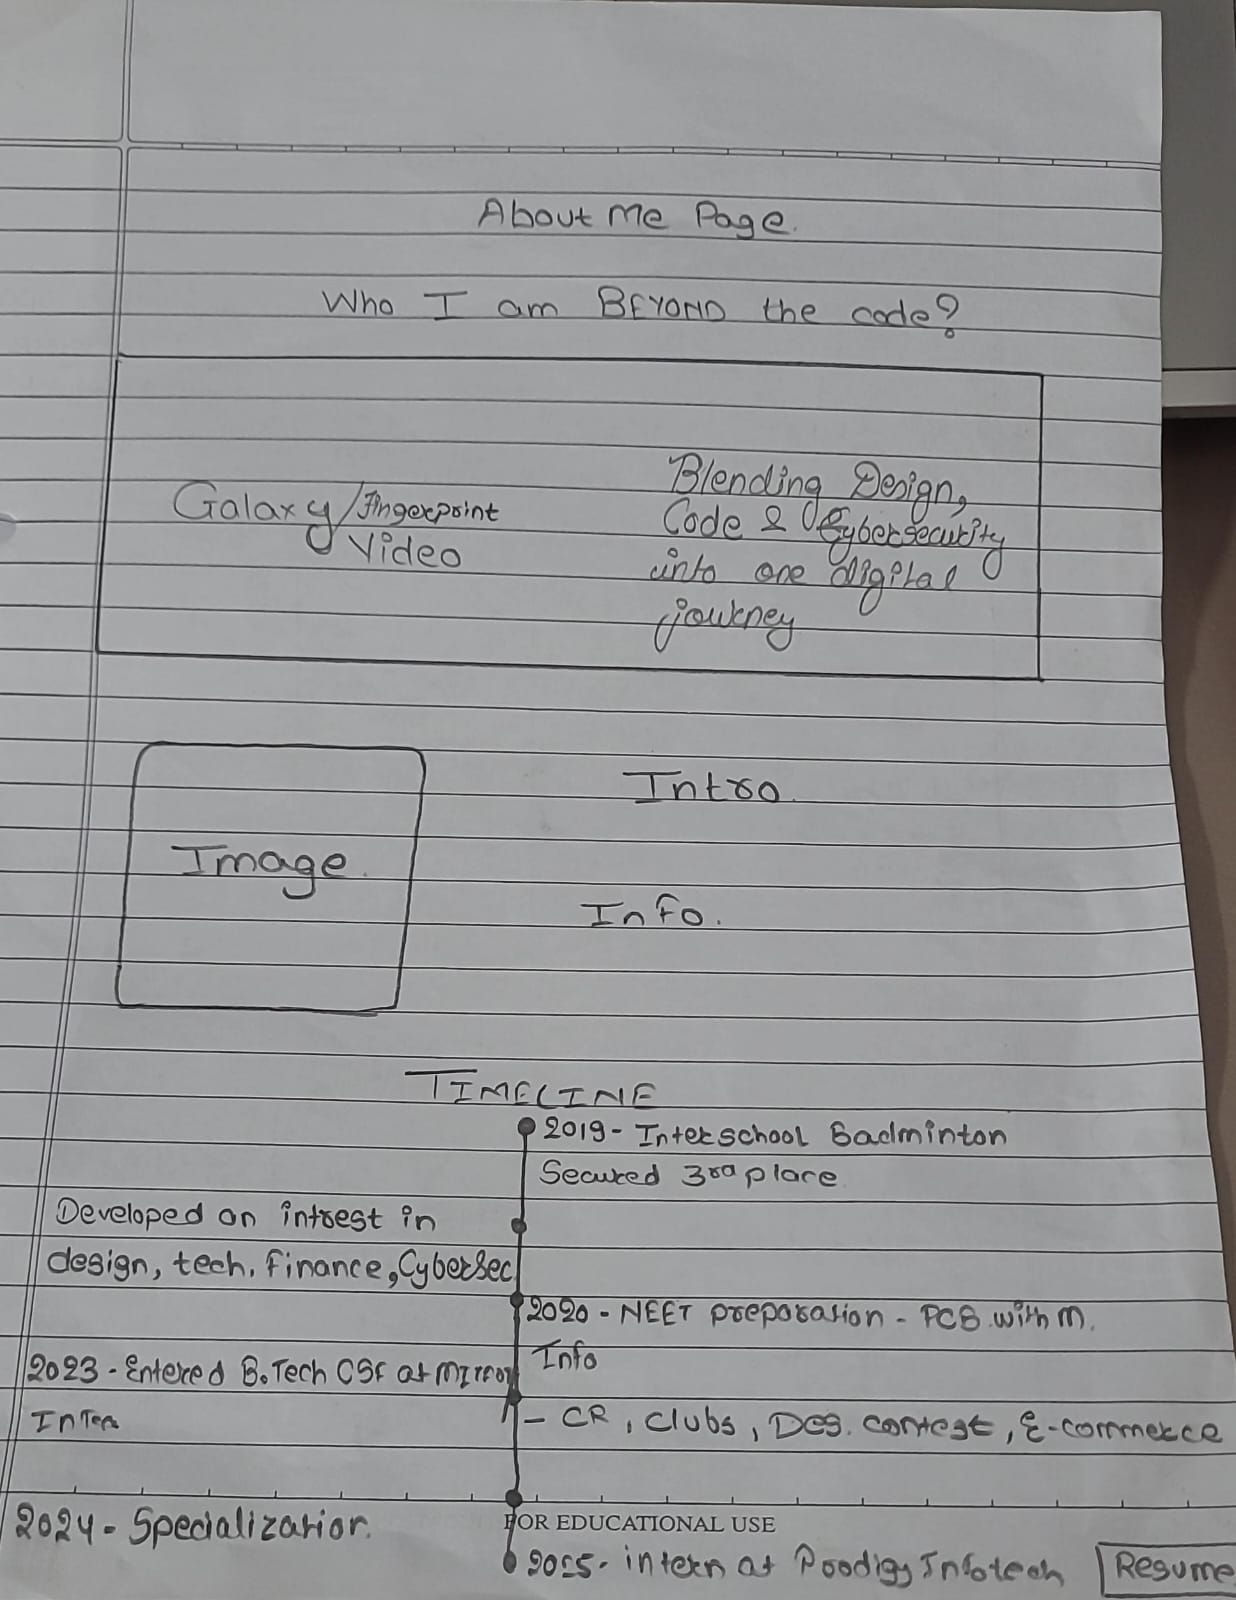 About Me Page.
Who I am BEYOND the code?
Galaxy/fingerprint
Video
Blending Design,
Code & Cybersecurity
into one digital
journey
Image.
Intro.
Info.
TIMELINE
2019 - Interschool Badminton
Secured 3rd place
Developed an intrest in
design, tech, finance, Cybersec
2020 - NEET preparation - PCB with M.
Info
2023 - Entered B.Tech CSE at
- CR, Clubs, Des. contest, E-commerce
2024 - Specialization.
FOR EDUCATIONAL USE
2025 - intern at Prodigy Infotech
Resume